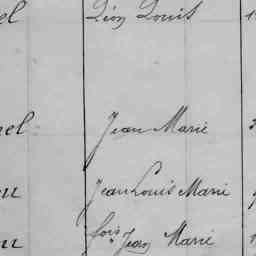 el Léon Louis
el Jean Marie
Jean Louis Marie
Jean Marie